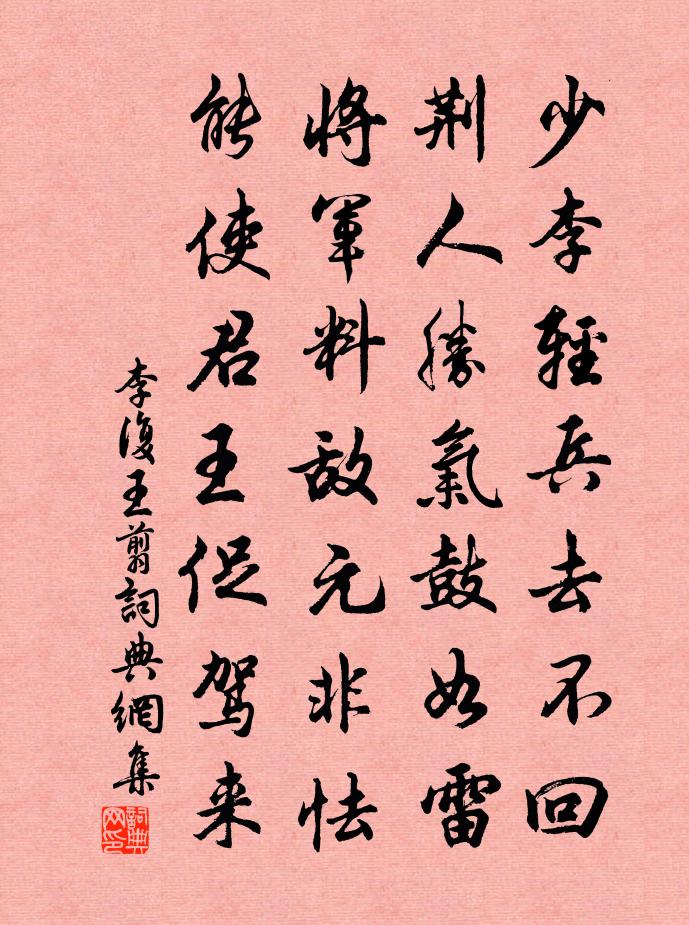 少李輕兵去不回
荆人勝氣鼓如雷
將軍料敵元非怯
能使君王促駕来
李復王翦詞典網集
詞典网印